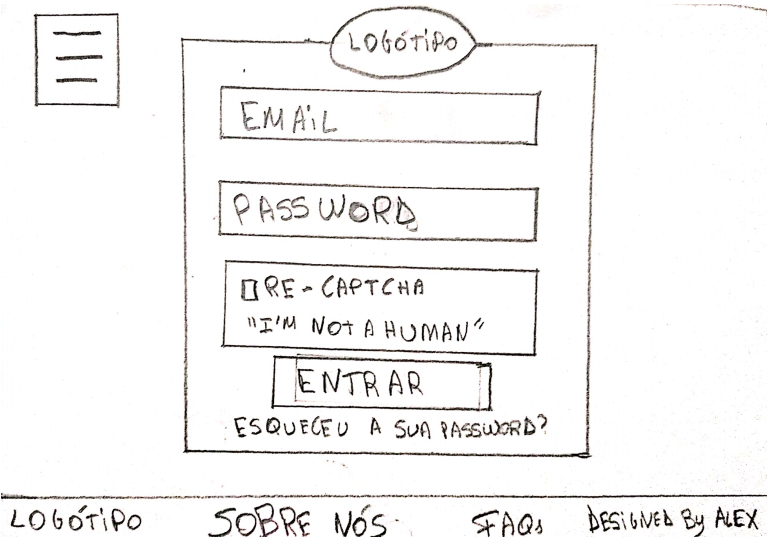 LOGÓTIPO
EMAIL
PASSWORD
RE-CAPTCHA
"I'M NOT A HUMAN"
ENTRAR
ESQUECEU A SUA PASSWORD?
LOGÓTIPO SOBRE NÓS FAQs DESIGNED By ALEX